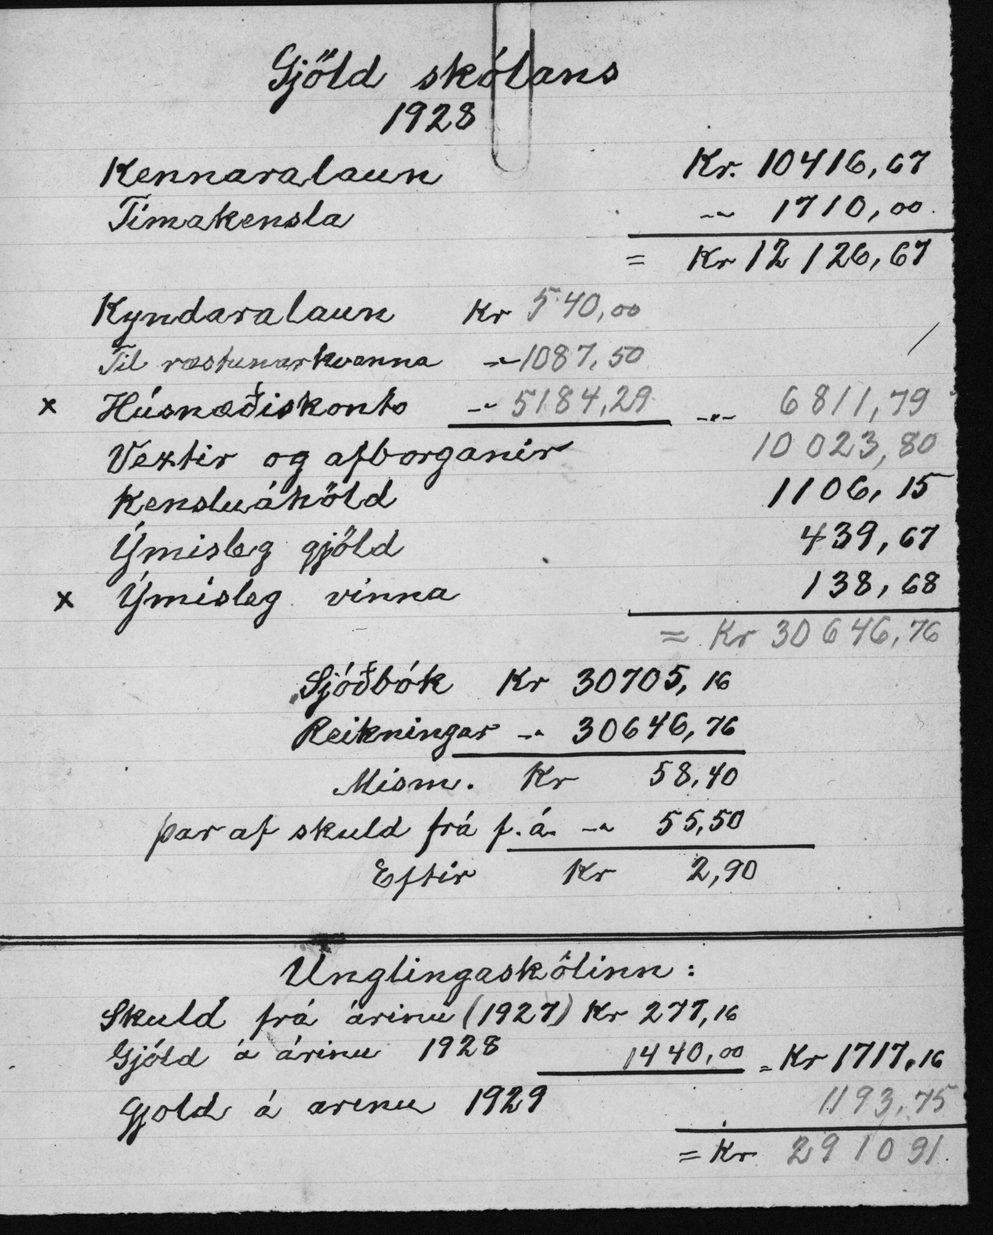 Gjöld skólans
1928
Kennaralaun Kr. 10416,67
Tímakensla -"- 1710,00
= Kr 12126,67
Kyndaralaun Kr 540,00
Til ræstunarkvenna -"- 1087,50
x Húsnæðiskonto -"- 5184,29 -"- 6811,79
Vextir og afborganir 10023,80
Kensluáhöld 1106,15
Ýmisleg gjöld 439,67
x Ýmisleg vinna 138,68
= Kr 30646,76
Sjóðbók Kr 30705,16
Reikningar -"- 30646,76
Mism. Kr 58,40
þar af skuld frá f.á. -"- 55,50
Eftir Kr 2,90
Unglingaskólinn:
Skuld frá árinu (1927) Kr 277,16
Gjöld á árinu 1928 1440,00 = Kr 1717,16
Gjold á arinu 1929 1193,75
= Kr 2910 91.